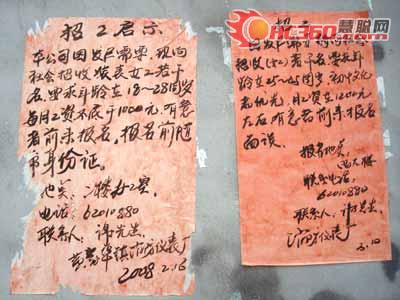 HC360慧聪网
招工启示
本公司因发展需要,现向
社会招收装表女工若干
名,要求年龄在18~28周岁
每月工资不底于1000元,有意
者前来报名,报名前随
带身份证。
地点:二楼办公室
电话:62010880
联系人:谢先生
仪表厂
2008.2.16
招工
招收
年
龄在25~45周岁,初中文化
者优先,月工资在1200元
左右有意者前来报名
面谈。
报名地点:
联系电话:
62010880
联系人:谢先生
仪表厂
2.10